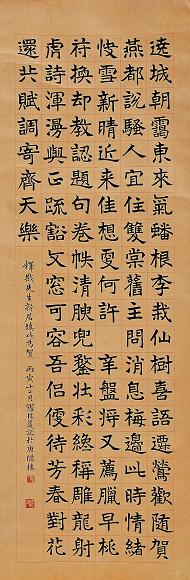 遶城朝靄東來氣蟠根李栽仙樹喜語遷鶯歡隨賀
燕都說騷人宜住雙棠舊主問消息梅邊此時情緒
快雪新晴近來佳想更何許 辛盤將又薦臘早桃
符換却教認題句卷帙清腴兜鍪壯彩總稱雕龍射
虎詩渾漫與正疏豁文窓可容吾侶便待芳春對花
還共賦調寄齊天樂
釋戡先生新居填此為賀 丙寅十二月